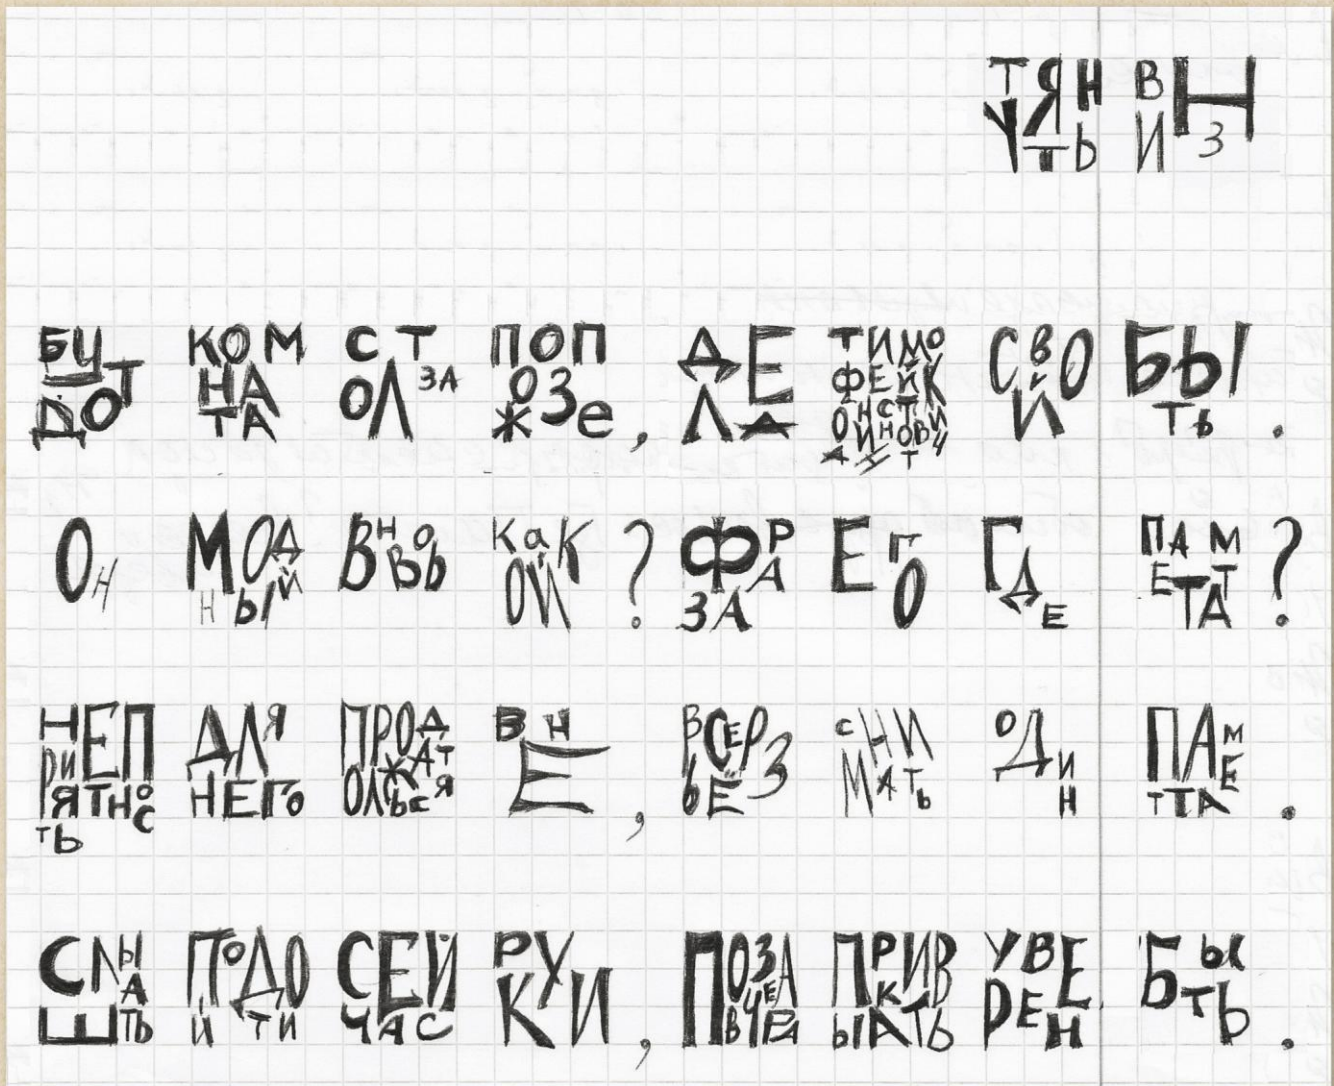 ТЯНУТЬ ВНИЗ
БУДТО КОМНАТА СТОЛ ЗА ПОПОЗЖе, ДЕЛА ТИМОФЕЙ КОНСТАНТИНОВИЧ СВОЙ БЫТЬ.
ОН МОДНЫЙ ВНОВЬ КаКОЙ? ФРАЗА ЕГО ГДЕ ПАМЕТТА?
НЕПРИЯТНОСТЬ ДЛЯ НЕГО ПРОДОЛЖАТЬСЯ ВНЕ, ВСЕРЬЁЗ СНИМАТЬ ОДИН ПАМЕТТА.
СЛЫШАТЬ ПОДОЙТИ СЕЙЧАС РУКИ, ПОЗАВЧЕРА ПРИВЫКАТЬ УВЕРЕН БЫТЬ.